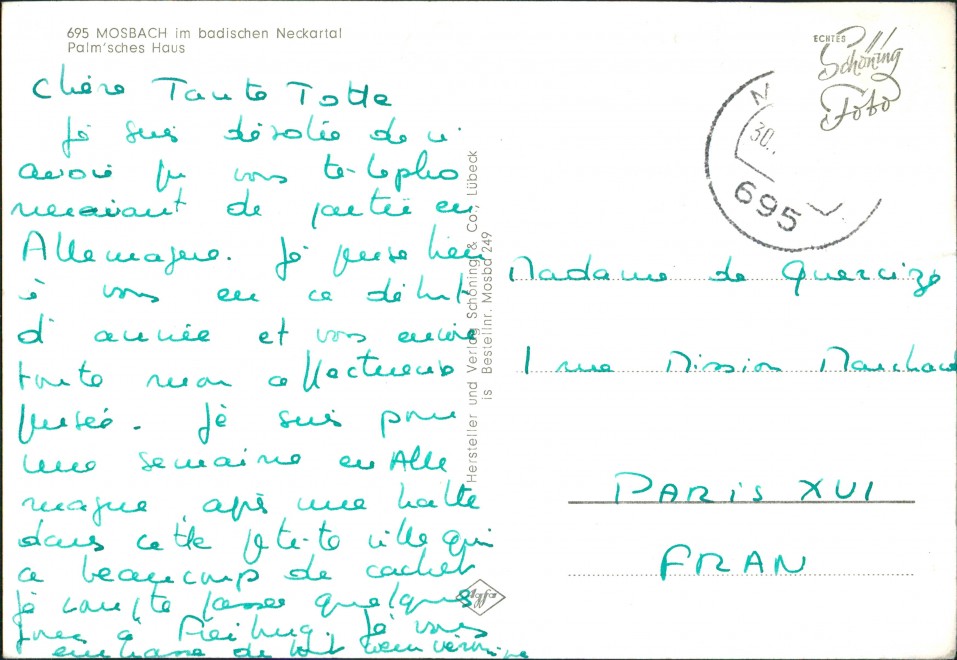 695 MOSBACH im badischen Neckartal
Palm'sches Haus
ECHTES
Schöning
Foto
30.
695
Chère Tante Totte
Je suis désolée de n'
avoir pu vous té-lépho
neravant de partir en
Allemagne. Je pense bien
à vous en ce début
d'année et vous envoie
toute mon affectueuse
pensée. Je suis pour
une semaine en Alle
magne, après une halte
dans cette pe-ti-te ville qui
a beaucoup de cachet
Je compte passer quelques
jours à Freiburg. Je vous
embrasse de tout cœur
Hersteller und Verlag Schöning & Co., Lübeck
is Bestellnr. Mosba 249
Agfa
Madame de Quercize
1 rue Mission Marchand
PARIS XVI
FRAN